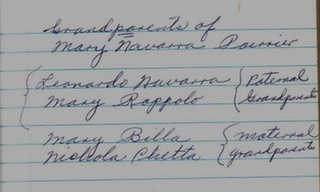 Grandparents of
Mary Navarra Poirier
Leonardo Navarra Paternal
Mary Rappolo Grandparents
Mary Billa maternal
Nichola Chetta grandparents